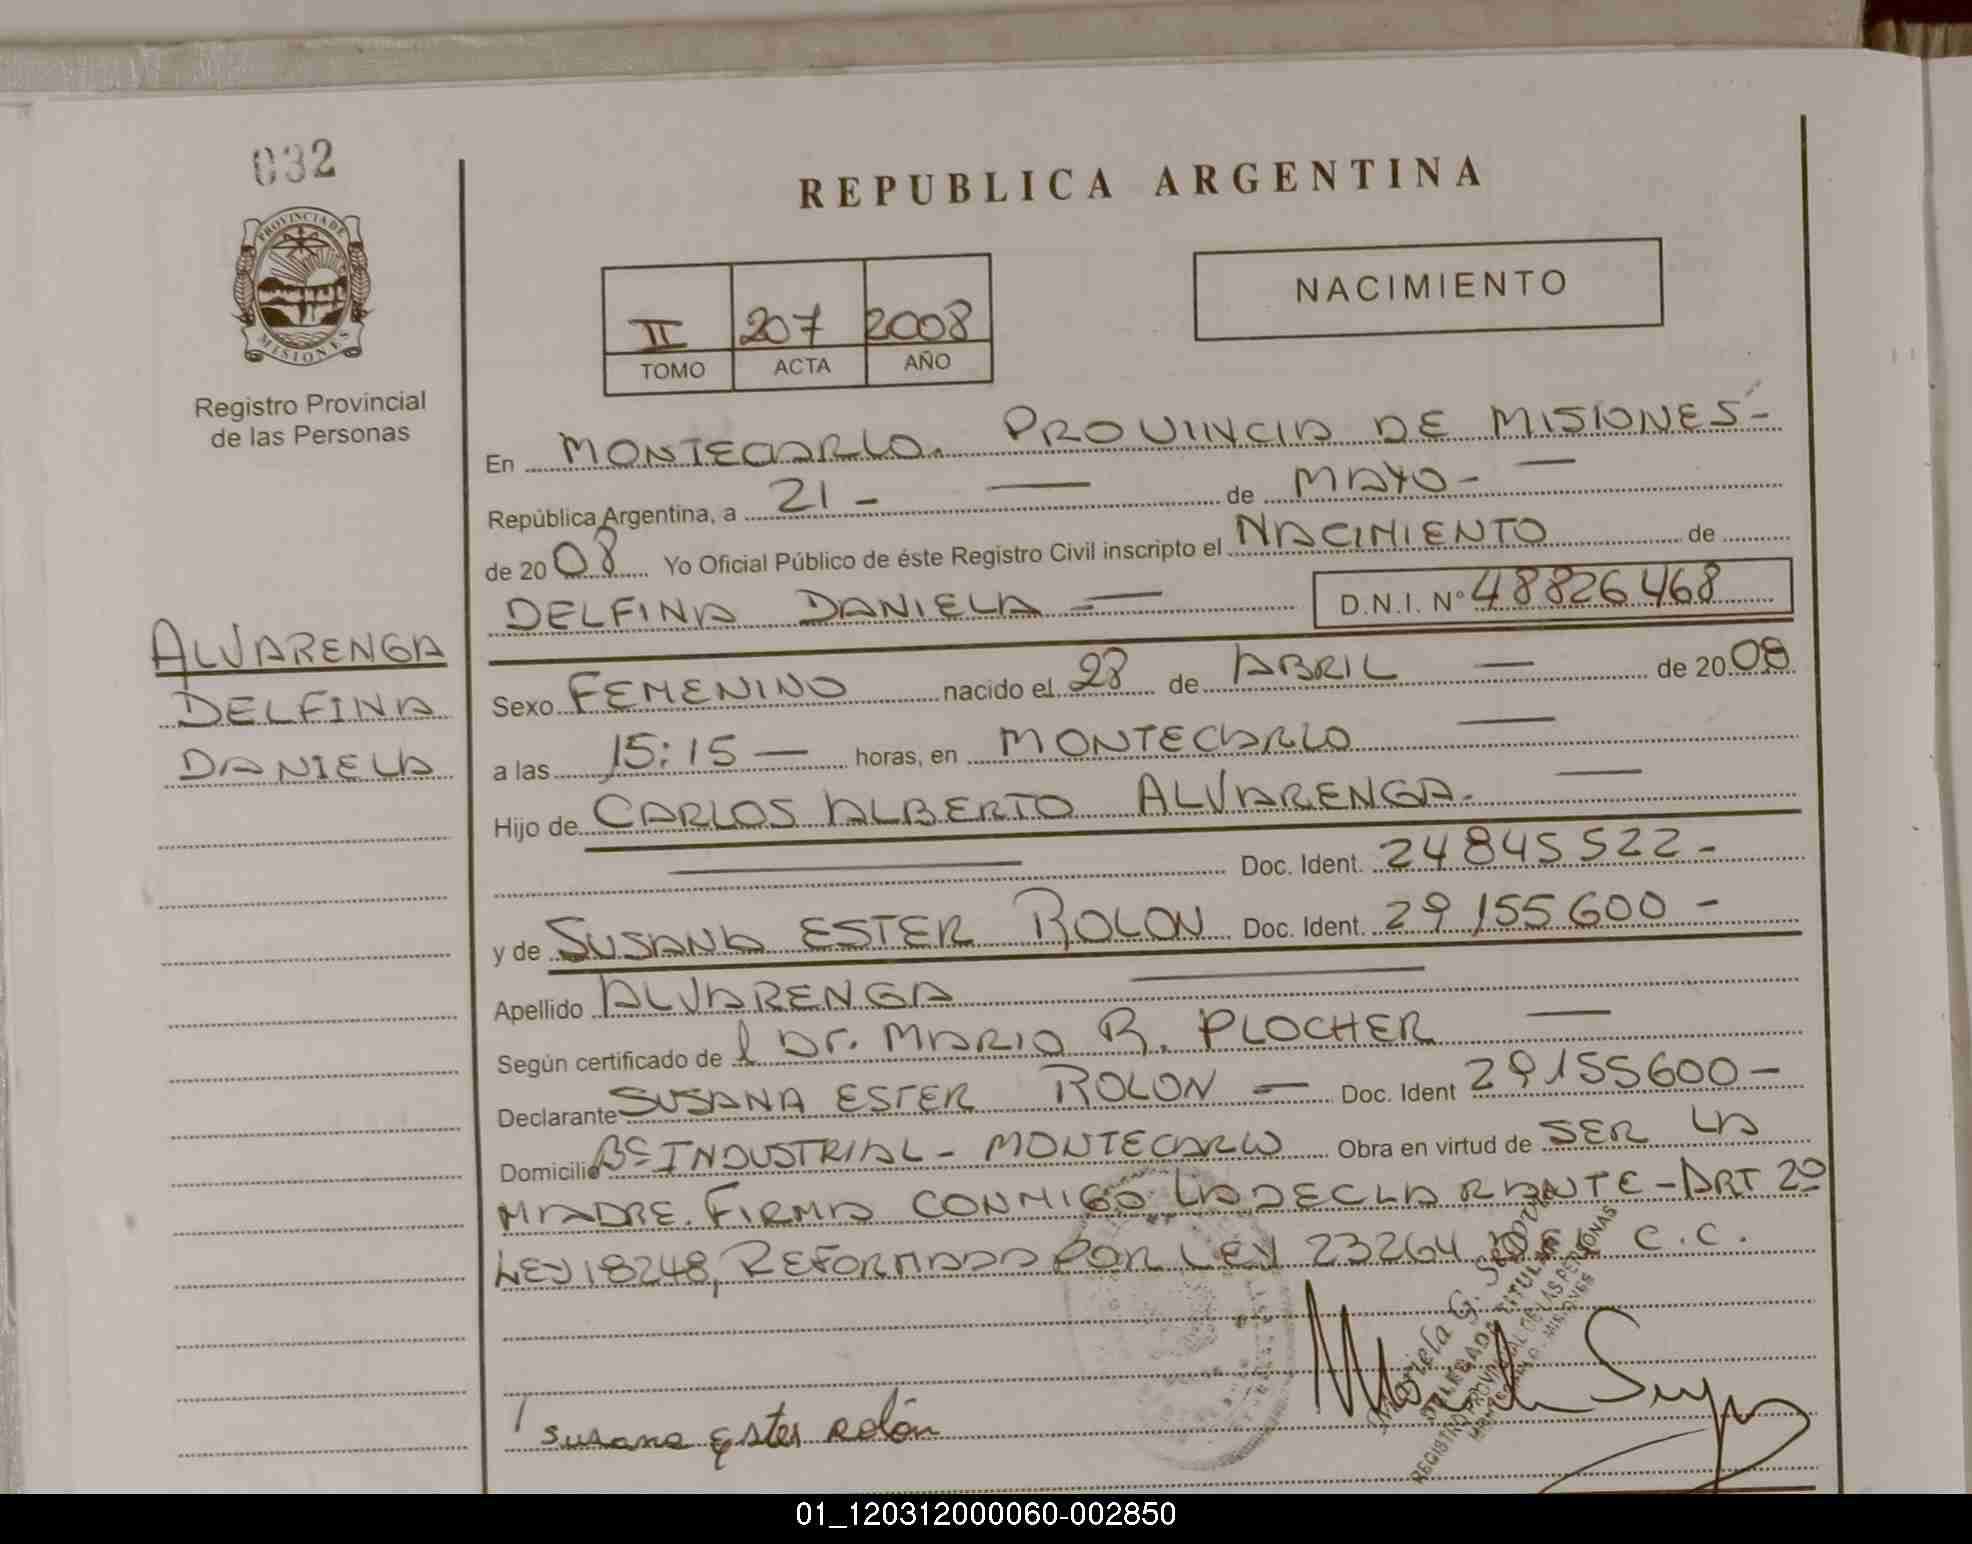 032
PROVINCIA DE
MISIONES
Registro Provincial
de las Personas
ALVARENGA
DELFINA
DANIELA
REPUBLICA ARGENTINA
II 207 2008
TOMO ACTA AÑO
NACIMIENTO
En MONTECARLO. PROVINCIA DE MISIONES-
República Argentina, a 21 - — de MAYO- —
de 2008 Yo Oficial Público de éste Registro Civil inscripto el NACIMIENTO de
DELFINA DANIELA — D.N.I. Nº 48826468
Sexo FEMENINO nacido el 28 de ABRIL — de 2008
a las 15:15 — horas, en MONTECARLO —
Hijo de CARLOS ALBERTO ALVARENGA. —
— Doc. Ident. 24845522-
y de SUSANA ESTER ROLON Doc. Ident. 29155600 -
Apellido ALVARENGA —
Según certificado de l Dr. MARIO R. PLOCHER —
Declarante SUSANA ESTER ROLON — Doc. Ident 29155600-
Domicilio Bº INDUSTRIAL - MONTECARLO Obra en virtud de SER LA
MADRE. FIRMA CONMIGO LA DECLARANTE - ART 2º
LEY 18248, REFORMADA POR LEY 23264 C.C.
Susana Ester Rolón
Mariela G.
DELEGADA TITULAR
REGISTRO PROVINCIAL DE LAS PERSONAS
MISIONES
01_120312000060-002850